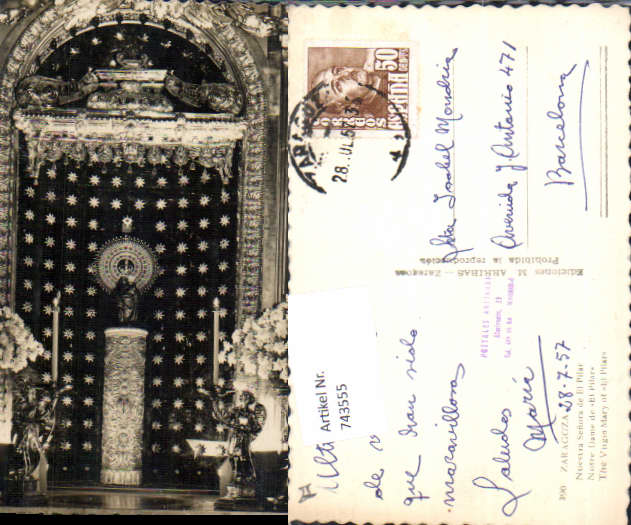 50
ESPAÑA
CORREOS
28. JUL. 57
Srta Isabel Mondria
Avenida J. Antonio 471
Barcelona
Ediciones M. ARRIBAS - Zaragoza
Prohibida la reproducción
Artikel Nr.
743555
de
que han sido
maravillosas
Saludos
María
28-7-57
ZARAGOZA
Nuestra Señora de El Pilar
Notre Dame de «El Pilar»
The Virgin Mary of «El Pilar»